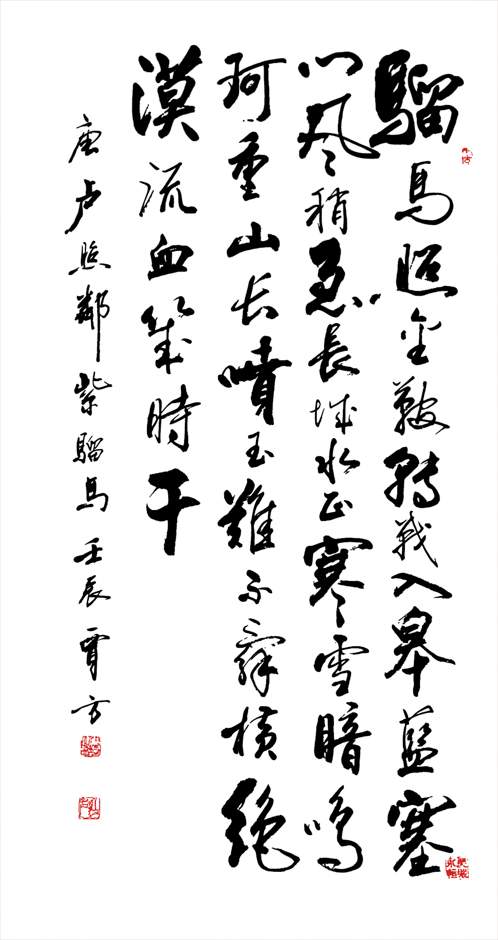 騮馬照金鞍轉戰入皋藍塞
门風稍急長城水正寒雪暗鳴
珂重山长噴玉難不辭横絶
漠流血幾時干
唐卢照鄰紫騮馬壬辰賈方